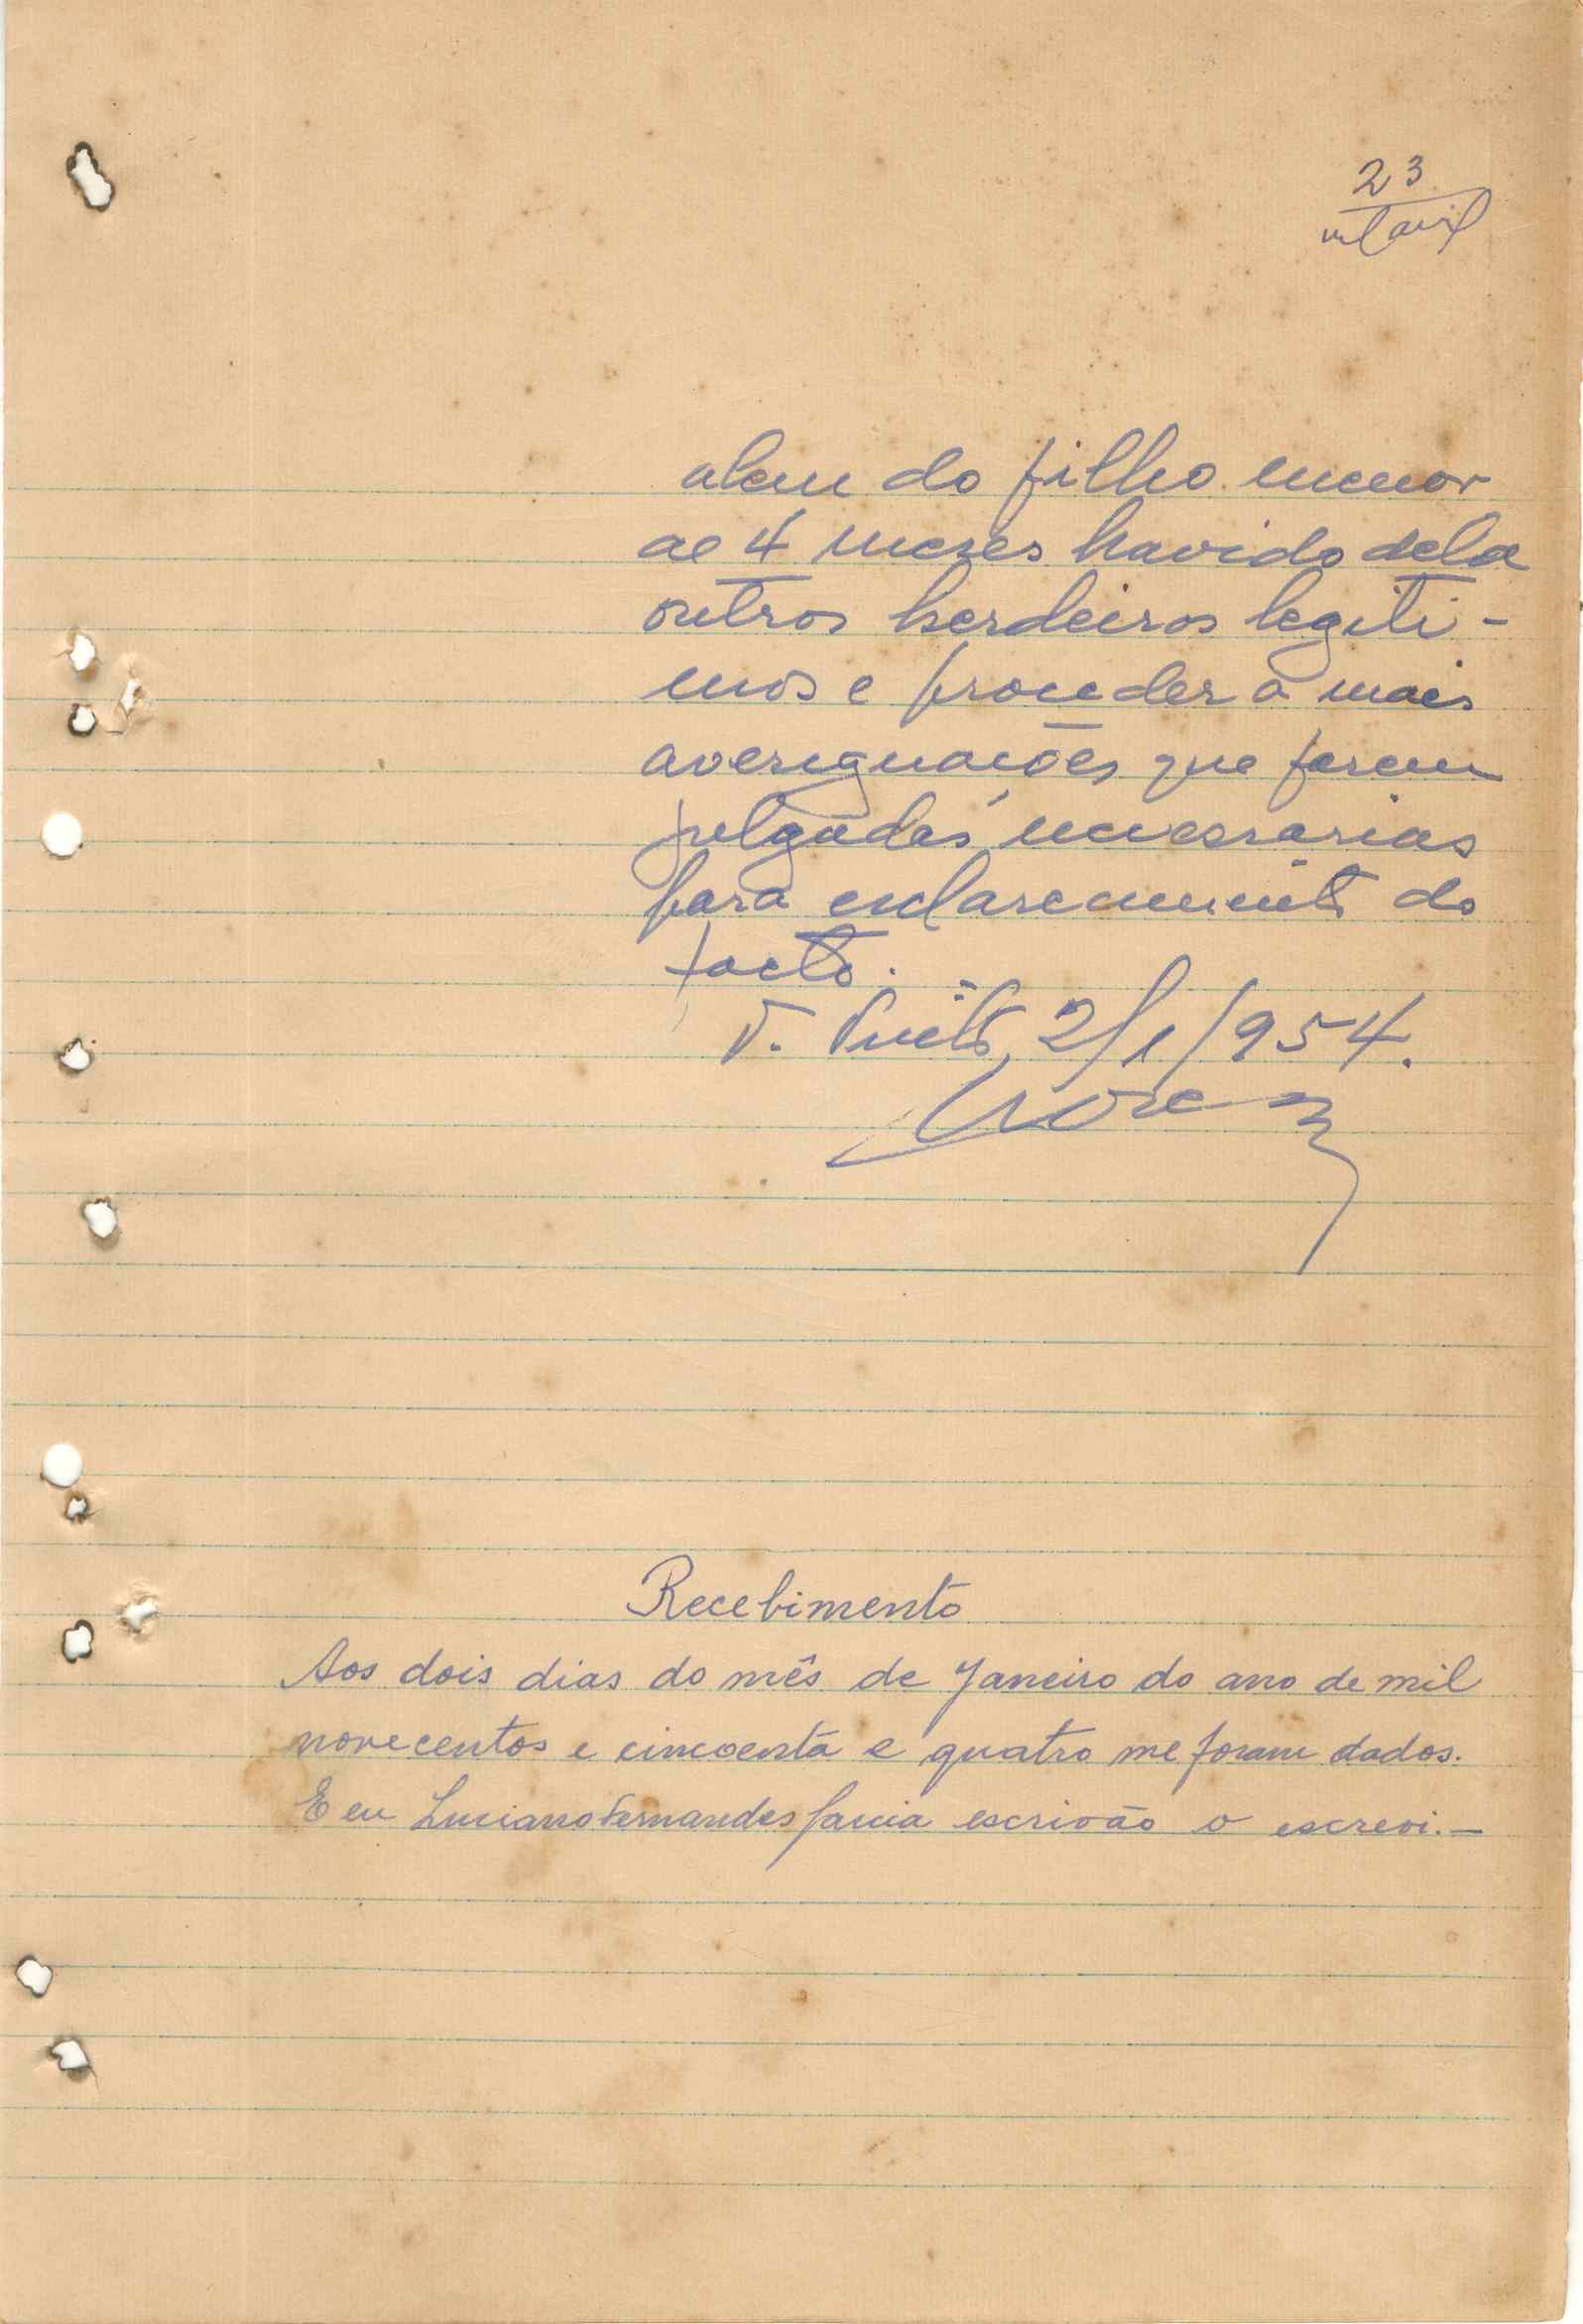 23
alem do filho menor
de 4 mezes havido dela
outros herdeiros legiti-
mos e proceder a mais
averiguações que forem
julgadas necessarias
para esclarecimento do
facto.
2/1/954.
Recebimento
Aos dois dias do mês de Janeiro do ano de mil
novecentos e cincoenta e quatro me foram dados.
E eu Luciano Fernandes escrivão o escrevi.—